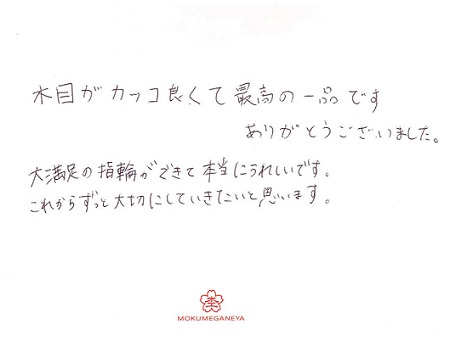 木目がカッコ良くて最高の一品です
ありがとうございました。
大満足の指輪ができて本当にうれしいです。
これからずっと大切にしていきたいと思います。
杢
MOKUMEGANEYA